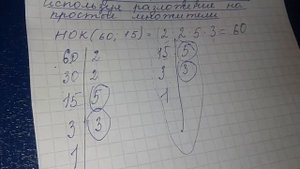 Используя разложение на
простые множители
НОК(60, 15) = 2 2 5 · 3 = 60
60 | 2
30 | 2
15 | 5
3 | 3
1
15 | 5
3 | 3
1